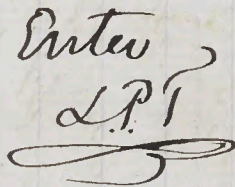 Enter
L.P.T